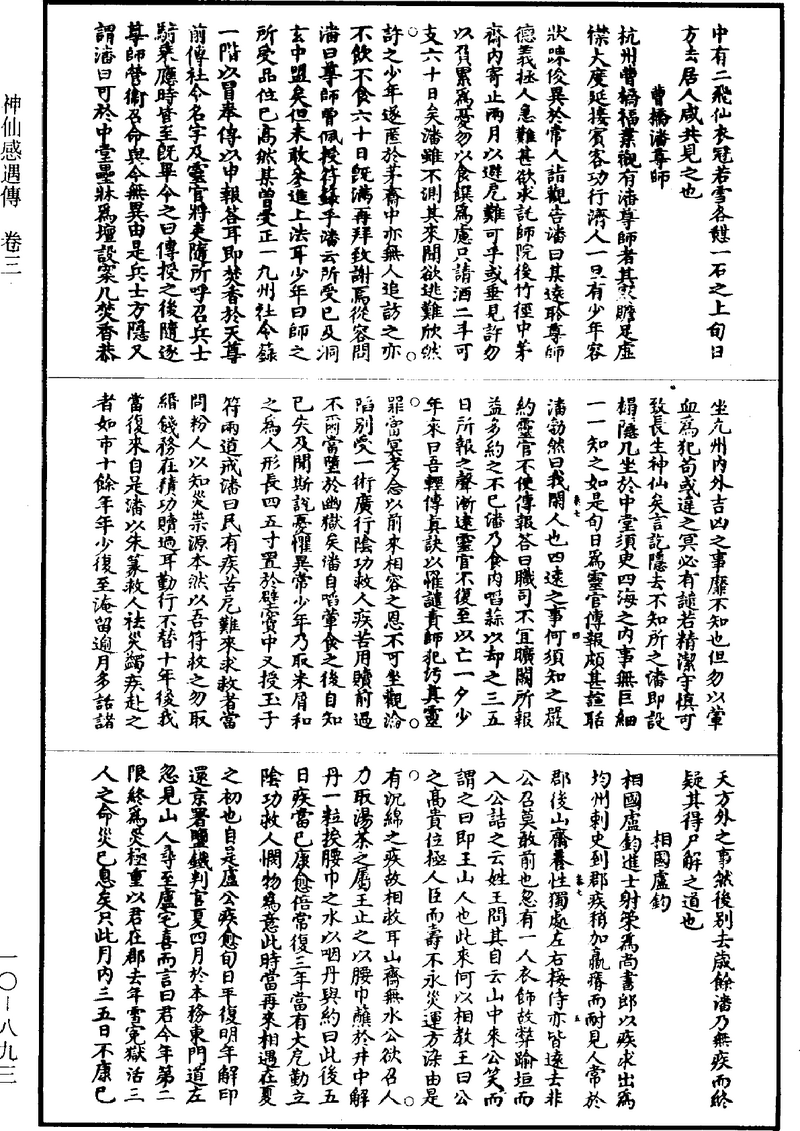 中有二飛仙衣冠若雪各憇一石之上旬日
方去居人咸共見之也
曹橋潘尊師
杭州曹橋福業觀有潘尊師者其家贍足虛
襟大度延接賓客功行濟人一旦有少年容
狀疎俊異於常人詣觀告潘曰某遠聆尊師
德義拯人急難甚欲求託師院後竹徑中茅
齋內寄止兩月以避厄難可乎或垂見許勿
以負累爲憂勿以食饌爲慮只請酒二斗可
支六十日矣潘雖不測其來聞欲逃難欣然
許之少年遂匿於茅齋中亦無人追訪之亦
不飲不食六十日既滿再拜致謝焉從容問
潘曰尊師曾佩授符籙乎潘云所受已及洞
玄中盟矣但未敢參進上法耳少年曰師之
所受品位已高然某曾受正一九州社令籙
一階以冒奉傳以申報答耳即焚香於天尊
前傳社令名字及靈官將吏隨所呼召兵士
騎乘應時皆至既畢令之曰傳授之後隨逐
尊師營衛召命與今無異由是兵士方隱又
謂潘曰可於中堂壘牀爲壇設案几焚香恭
坐九州內外吉凶之事靡不知也但勿以葷
血爲犯苟或違之冥必有譴若精潔守慎可
致長生神仙矣言訖隱去不知所之潘即設
榻隱几坐於中堂須臾四海之內事無巨細
一一知之如是旬日爲靈官傳報頗甚諠聒
潘勃然曰我閑人也四遠之事何須知之嚴
約靈官不使傳報答曰職司不宜曠闕所報
益多約之不已潘乃食肉啗蒜以却之三五
日所報之聲漸遠靈官不復至以亡一夕少
年來曰吾輕傳真訣以罹譴責師犯污真靈
罪當冥考念以前來相容之恩不可坐觀淪
陷別受一術廣行陰功救人疾苦用贖前過
不爾當墮於幽獄矣潘自啗葷食之後自知
已失及聞斯說憂懼異常少年乃取米屑和
之爲人形長四五寸置於壁竇中又授玉子
符兩道戒潘曰民有疾苦厄難來求救者當
問粉人以知災祟源本然以吾符救之勿取
緡餞務在積功贖過耳勤行不替十年後我
當復來自是潘以朱篆救人袪災蠲疾赴之
者如市十餘年年少復至淹留逾月多話諸
天方外之事然後別去歲餘潘乃無疾而終
疑其得尸解之道也
相國盧鈞
相國盧鈞進士射策爲尚書郎以疾求出爲
均州刺史到郡疾稍加羸瘠而耐見人常於
郡後山齋養性獨處左右接侍亦皆遠去非
公召莫敢前也忽有一人衣飾故弊踰垣而
入公詰之云姓王問其自云山中來公笑而
謂之曰即王山人也此來何以相教王曰公
之高貴位極人臣而壽不永災運方深由是
有沉綿之疾故相救耳山齋無水公欲召人
力取湯茶之屬王止之以腰巾蘸於井中解
丹一粒挨腰巾之水以咽丹與約曰此後五
日疾當已康愈倍常復三年當有大厄勤立
陰功救人憫物爲意此時當再來相遇在夏
之初也自是盧公疾愈旬日平復明年解印
還京署鹽鐵判官夏四月於本務東門道左
忽見山人尋至盧宅喜而言曰君今年第二
限終爲災極重以君在郡去年雪冤獄活三
人之命災已息矣只此月內三五日不康已
神仙感遇傳 卷三
一〇-八九三